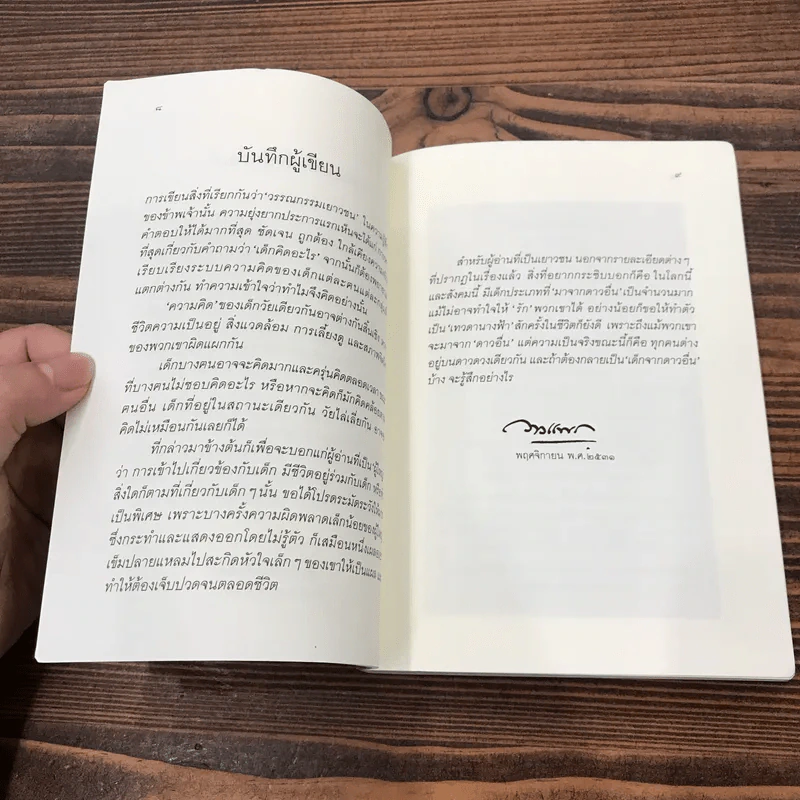 ๘
บันทึกผู้เขียน
การเขียนสิ่งที่เรียกกันว่า‘วรรณกรรมเยาวชน’ ในความ
ของข้าพเจ้านั้น ความยุ่งยากประการแรกเห็นจะได้แก่
คำตอบให้ได้มากที่สุด ชัดเจน ถูกต้อง ใกล้เคียงความ
ที่สุดเกี่ยวกับคำถามว่า‘เด็กคิดอะไร’ จากนั้นก็ต้องพยายาม
เรียบเรียงระบบความคิดของเด็กแต่ละคนแต่ละ
แตกต่างกัน ทำความเข้าใจว่าทำไมจึงคิดอย่างนั้น
‘ความคิด’ของเด็กวัยเดียวกันอาจต่างกันสิ้นเชิง
ชีวิตความเป็นอยู่ สิ่งแวดล้อม การเลี้ยงดู และสภาพ
ของพวกเขาผิดแผกกัน
เด็กบางคนอาจจะคิดมากและครุ่นคิดตลอดเวลา
ที่บางคนไม่ชอบคิดอะไร หรือหากจะคิดก็มักคิดคล้อยตาม
คนอื่น เด็กที่อยู่ในสถานะเดียวกัน วัยไล่เลี่ยกัน อาจ
คิดไม่เหมือนกันเลยก็ได้
ที่กล่าวมาข้างต้นก็เพื่อจะบอกแก่ผู้อ่านที่เป็น
ว่า การเข้าไปเกี่ยวข้องกับเด็ก มีชีวิตอยู่ร่วมกับเด็ก
สิ่งใดก็ตามที่เกี่ยวกับเด็กๆนั้น ขอได้โปรดระมัดระวัง
เป็นพิเศษ เพราะบางครั้งความผิดพลาดเล็กน้อยของ
ซึ่งกระทำและแสดงออกโดยไม่รู้ตัว ก็เสมือนหนึ่ง
เข็มปลายแหลมไปสะกิดหัวใจเล็กๆของเขาให้เป็นแผล
ทำให้ต้องเจ็บปวดจนตลอดชีวิต
๙
สำหรับผู้อ่านที่เป็นเยาวชน นอกจากรายละเอียดต่างๆ
ที่ปรากฏในเรื่องแล้ว สิ่งที่อยากกระซิบบอกก็คือ ในโลกนี้
และสังคมนี้ มีเด็กประเภทที่‘มาจากดาวอื่น’เป็นจำนวนมาก
แม้ไม่อาจทำใจให้ ‘รัก’พวกเขาได้ อย่างน้อยก็ขอให้ทำตัว
เป็น‘เทวดานางฟ้า’สักครั้งในชีวิตก็ยังดี เพราะถึงแม้พวกเขา
จะมาจาก‘ดาวอื่น’ แต่ความเป็นจริงขณะนี้ก็คือ ทุกคนต่าง
อยู่บนดาวดวงเดียวกัน และถ้าต้องกลายเป็น‘เด็กจากดาวอื่น’
บ้าง จะรู้สึกอย่างไร
พฤศจิกายน พ.ศ.๒๕๓๑